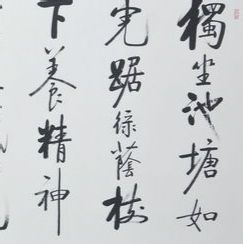 獨坐池塘如
虎踞綠蔭樹
下養精神